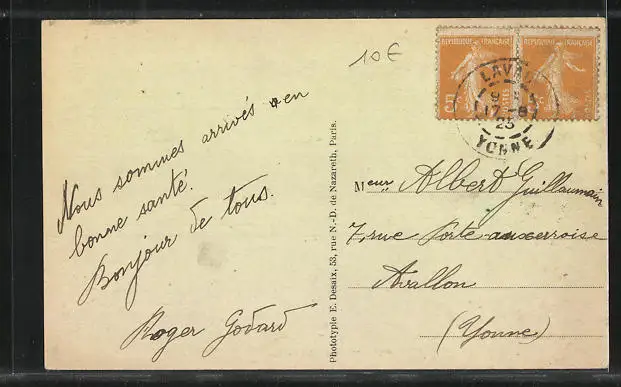 10€
RÉPUBLIQUE FRANÇAISE
RÉPUBLIQUE FRANÇAISE
POSTES
YONNE
17-8
25
Nous sommes arrivés en
bonne santé.
Bonjour de tous.
Roger Godard
Phototypie E. Desaix, 53, rue N.-D. de Nazareth, Paris.
Meur Albert Guillaumain
7, rue Porte-auxerroise
Avallon
(Yonne)